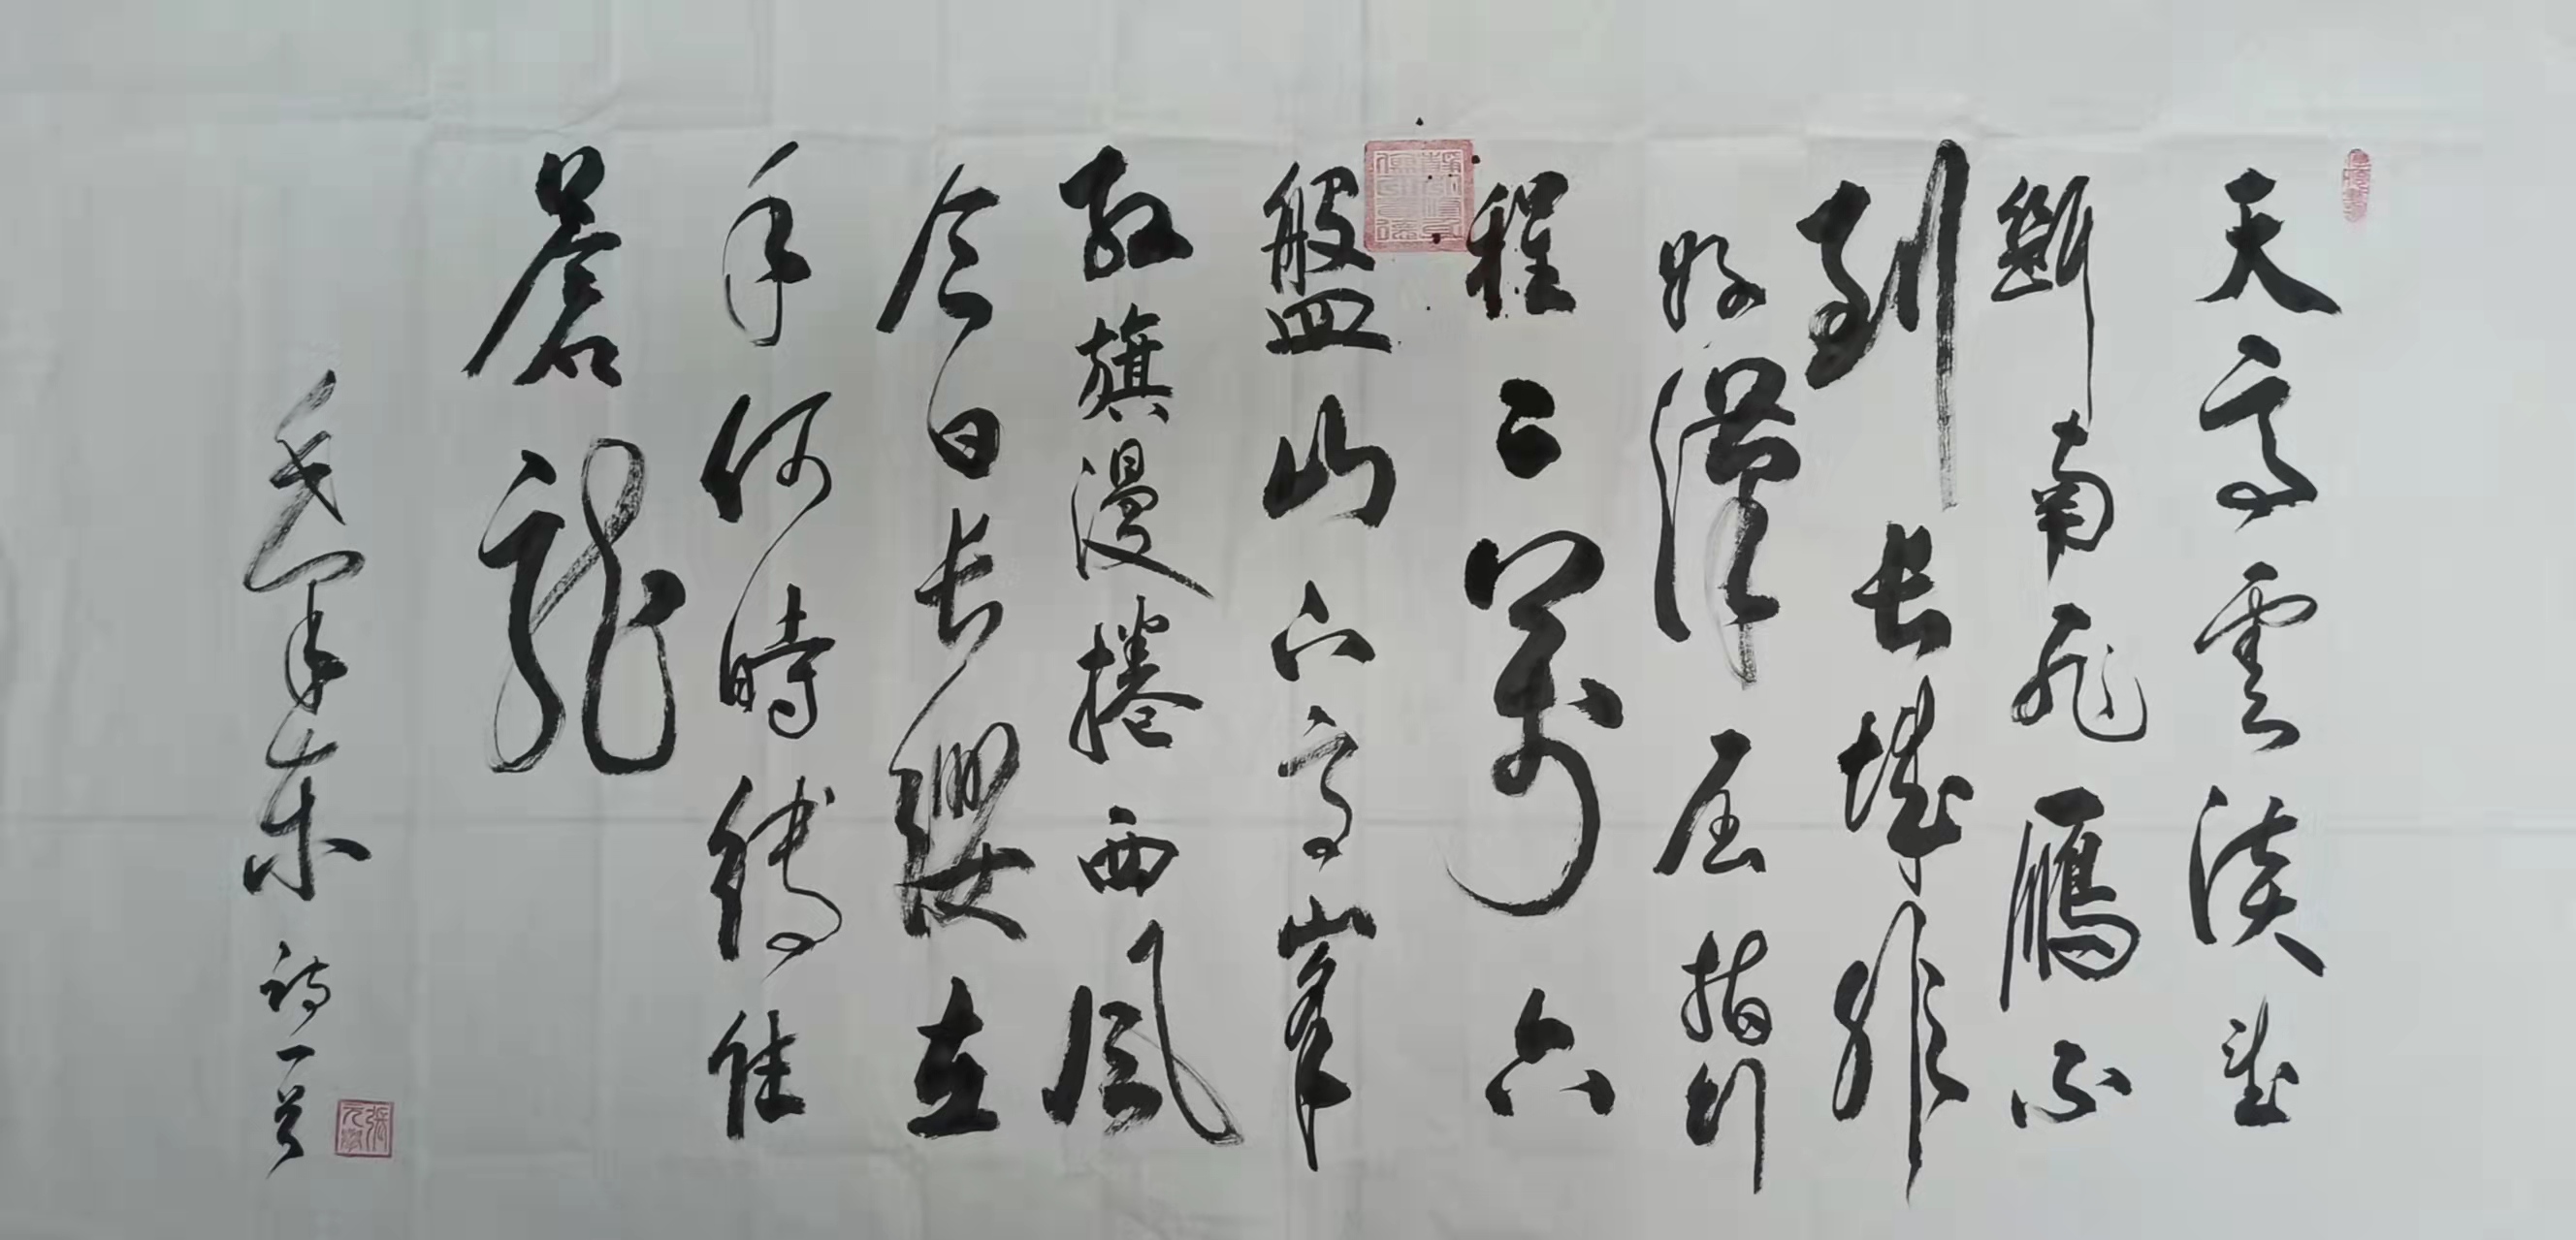 天高雲淡望
斷南飛雁不
到長城非
好漢屈指行
程二萬六
盤山上高峯
紅旗漫捲西風
今日長纓在
手何時縛住
蒼龍
毛澤東詩一首